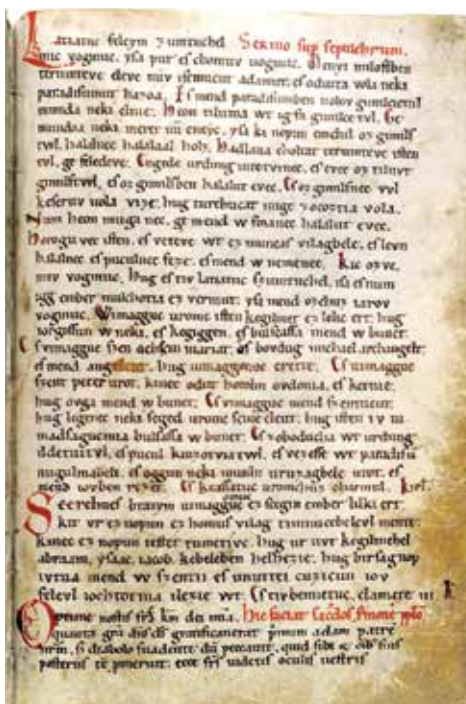 Latiatuc feleym zumtuchel Sermo sup sepulchrum.
mic vogmuc. ysa pur es chomuv uogmuc. Menyi milostben
terumteve eleve miv isemucut adamut. es odutta vola neki
paradisumut hazoa. Es mend paradisumben uolov gimilcictul
munda neki elnie. Heon tilutoa wt ig fa gimilce tvl. Ge
mundoa neki meret nu eneyc. ysa ki nopun emdul oz gimils
twl. halalnec halalaal holz. Hadlaua choltat terumteve isten
tvl. ge feledeve. Engede urdung intetvinec. es evec oz tiluvt
gimilstwl. es oz gimilsben halalut evec. Es oz gimilsnec vvl
keseruv uola vize. hug turchucat mige zocoztia vola.
Num heon muga nec. ge mend w foianec halalut evec.
Horogu vec isten. es veteve wt ez muncas vilagbele. es levn
halalnec es puculnec feze. es mend w nemenec. Kic ozvc.
miv vogmuc. Hug es tiv latiatuv szumtuchel. isa es num
igg ember mulchotia ez vermut. ysa mend ozchuz iarov
vogmuc. Wimagguc uromv isten kegilmet ez lelic ert. hug
iorgossun w neki. es kegiggen. es bulsassa mend w bunet.
Es vimagguc szen achscin mariat. es bovdug michael archangelt.
es mend angelcut. hug uimaggonoc erette. Es uimagguc
szent peter urot. kinec odut hotolm ovdonia. es ketnie.
hug ovga mend w bunet. Es vimagguc mend szentucut.
hug legenec neki seged uromc scine eleut. hug isten iv ui
madsagucmia bulsassa w bunet. Es zoboducha wt urdung
ildetuitvl. es pucul kinzotviatwl. es vezesse wt paradisu
nugulmabeli. es oggun neki munhi uruzagbele utot. es
mend iovben rezet. Es keassatuc uromchuz charmul. Kirl.
Scerelmes bratym uimagguc omuc ez scegin ember lilki ert.
kit vr ez nopun ez homus vilag timnucebelevl mente.
kinec ez nopun testet tumetivc. hug ur uvt kegilmehel
abraam. ysaac. iacob. kebeleben helhezie. hug birsagnop
ivtva mend w szentii es unuttei cuzicun iov
felevl iochtotnia ilezie wt. Es tiv bennetuc. clamate iii. K